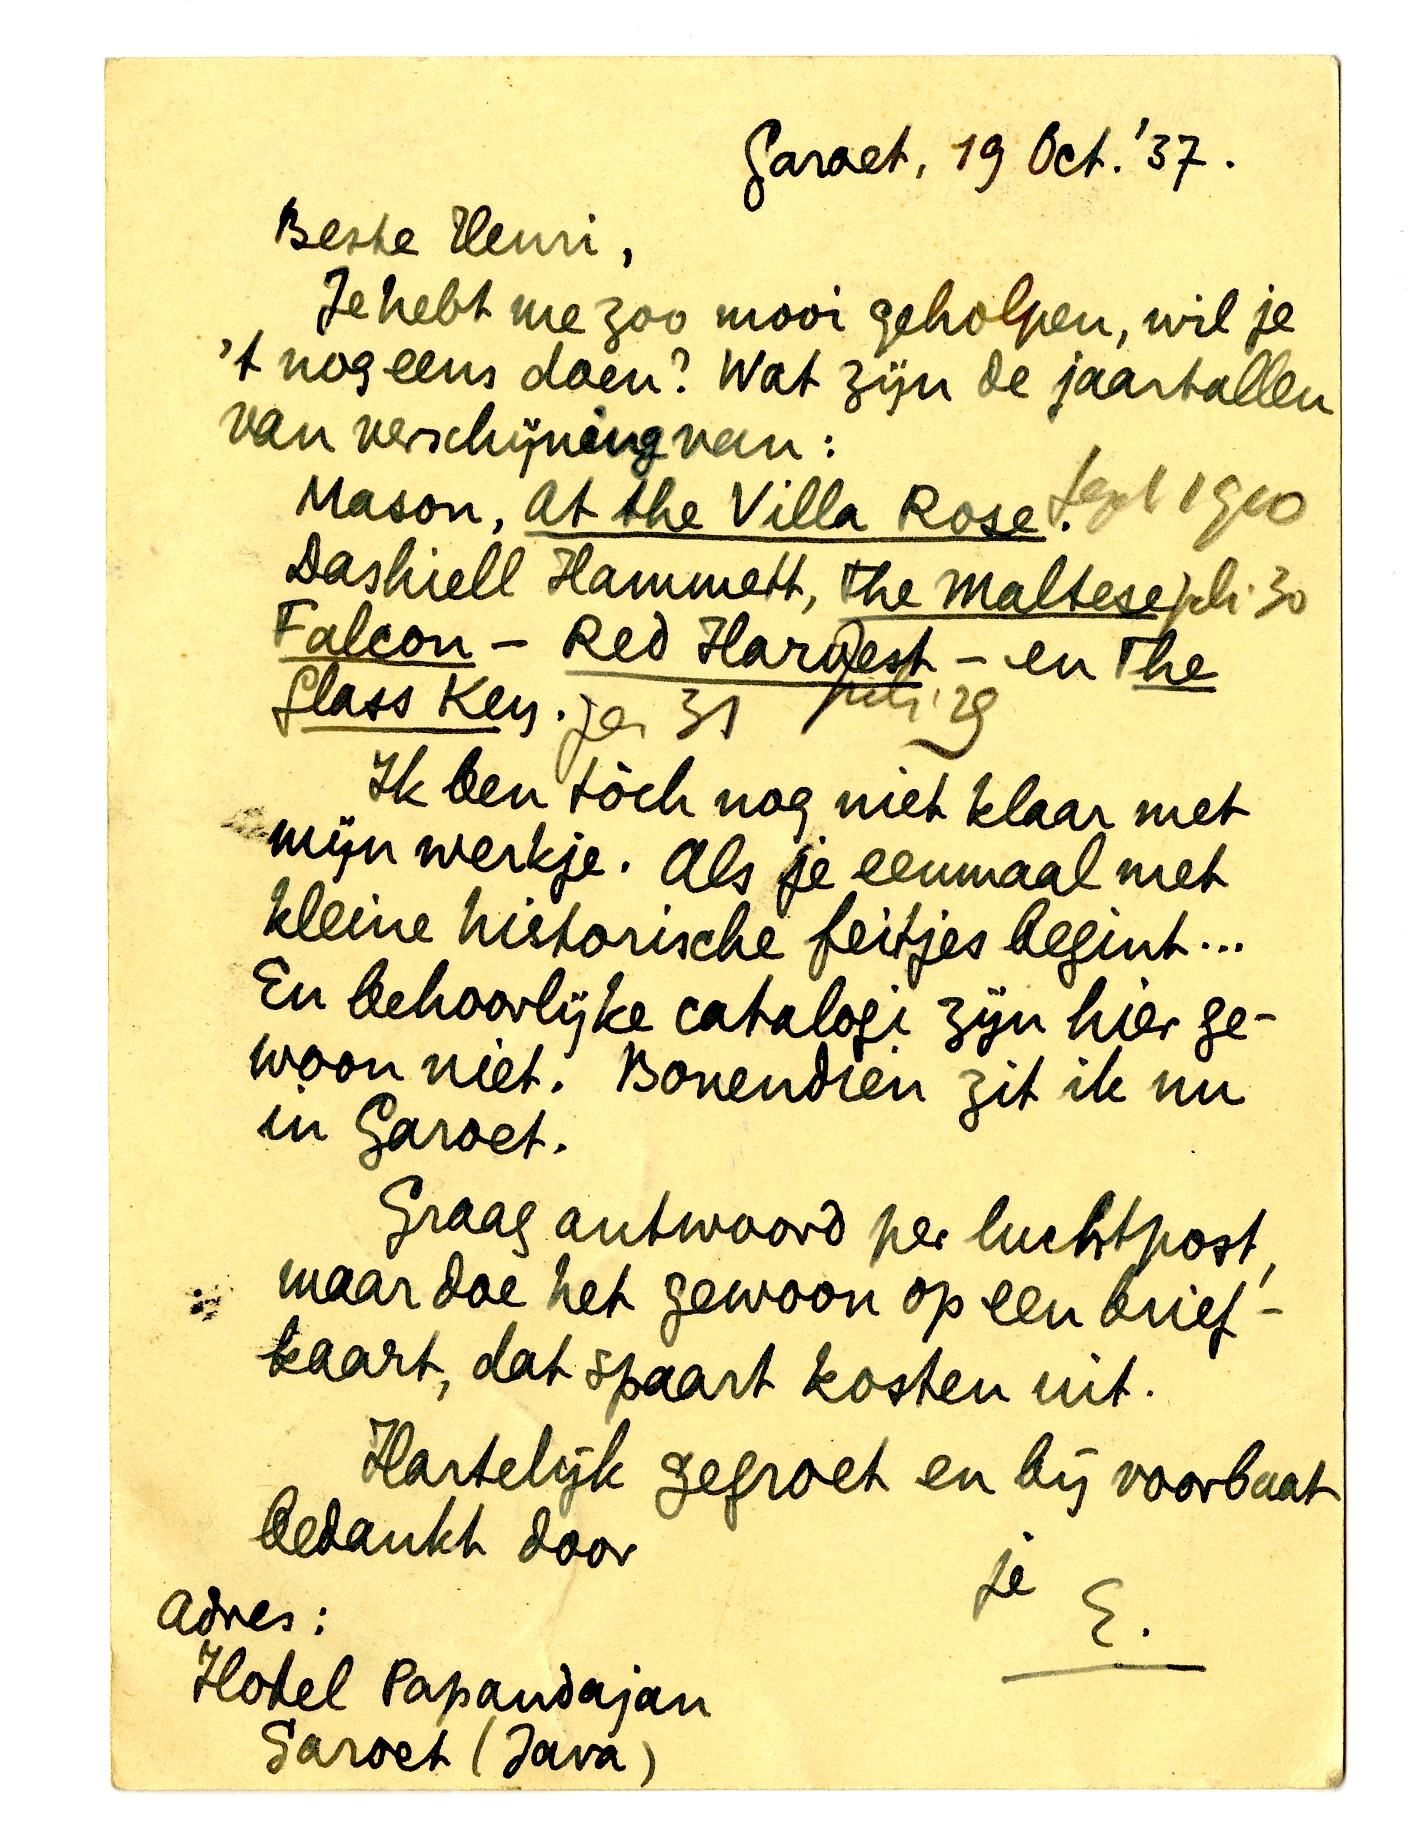 Garoet, 19 Oct. '37.
Beste Henri,
Je hebt me zoo mooi geholpen, wil je
't nog eens doen? Wat zijn de jaartallen
van verschijning van:
Mason, At the Villa Rose. Sept 1910
Dashiell Hammett, The Maltese juli 30
Falcon – Red Harvest – en The
Glass Key. jan 31 juli '29
Ik ben tòch nog niet klaar met
mijn werkje. Als je eenmaal met
kleine historische feitjes begint...
En behoorlijke catalogi zijn hier ge-
woon niet. Bovendien zit ik nu
in Garoet.
Graag antwoord per luchtpost,
maar doe het gewoon op een brief-
kaart, dat spaart kosten uit.
Hartelijk gegroet en bij voorbaat
bedankt door
je
E.
Adres:
Hotel Papandajan
Garoet (Java)